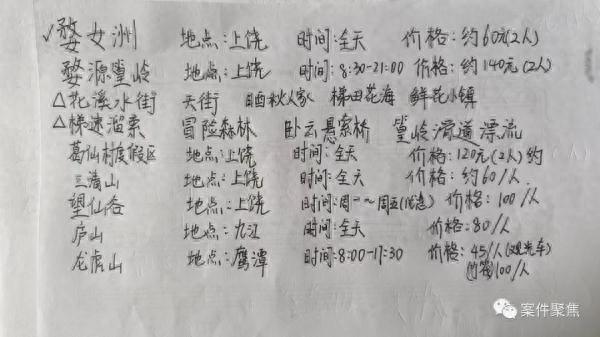 ✓婺女洲 地点:上饶 时间:全天 价格:约60元(2人)
婺源篁岭 地点:上饶 时间:8:30-21:00 价格:约140元(2人)
△花溪水街 天街 晒秋人家 梯田花海 鲜花小镇
△梯速溜索 冒险森林 卧云悬索桥 篁岭滑道漂流
葛仙村度假区 地点:上饶 时间:全天 价格:120元(2人)约
三清山 地点:上饶 时间:全天 价格:约60/人
望仙谷 地点:上饶 时间:周一~周五(优惠) 价格:100/人
庐山 地点:九江 时间:全天 价格:80/人
龙虎山 地点:鹰潭 时间:8:00-17:30 价格:45/人(观光车)
竹筏100/人
案件聚焦